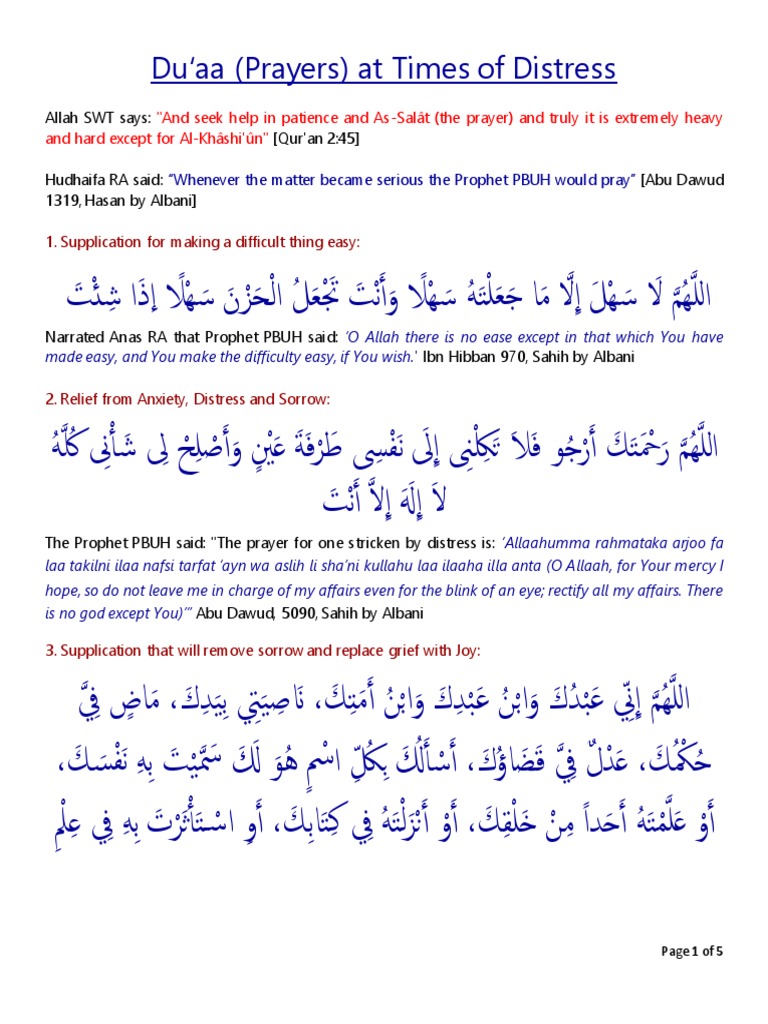 Du‘aa (Prayers) at Times of Distress
Allah SWT says: "And seek help in patience and As-Salât (the prayer) and truly it is extremely heavy
and hard except for Al-Khâshi'ûn" [Qur'an 2:45]
Hudhaifa RA said: “Whenever the matter became serious the Prophet PBUH would pray” [Abu Dawud
1319, Hasan by Albani]
1. Supplication for making a difficult thing easy:
اللَّهُمَّ لَا سَهْلَ إِلَّا مَا جَعَلْتَهُ سَهْلًا وَأَنْتَ تَجْعَلُ الْحَزْنَ سَهْلًا إِذَا شِئْتَ
Narrated Anas RA that Prophet PBUH said: ‘O Allah there is no ease except in that which You have
made easy, and You make the difficulty easy, if You wish.' Ibn Hibban 970, Sahih by Albani
2. Relief from Anxiety, Distress and Sorrow:
اللَّهُمَّ رَحْمَتَكَ أَرْجُو فَلاَ تَكِلْنِى إِلَى نَفْسِى طَرْفَةَ عَيْنٍ وَأَصْلِحْ لِى شَأْنِى كُلَّهُ
لاَ إِلَهَ إِلاَّ أَنْتَ
The Prophet PBUH said: "The prayer for one stricken by distress is: ‘Allaahumma rahmataka arjoo fa
laa takilni ilaa nafsi tarfat ‘ayn wa aslih li sha’ni kullahu laa ilaaha illa anta (O Allaah, for Your mercy I
hope, so do not leave me in charge of my affairs even for the blink of an eye; rectify all my affairs. There
is no god except You)’” Abu Dawud, 5090, Sahih by Albani
3. Supplication that will remove sorrow and replace grief with Joy:
اللَّهُمَّ إِنِّي عَبْدُكَ وَابْنُ عَبْدِكَ وَابْنُ أَمَتِكَ، نَاصِيَتِي بِيَدِكَ، مَاضٍ فِيَّ
حُكْمُكَ، عَدْلٌ فِيَّ قَضَاؤُكَ، أَسْأَلُكَ بِكُلِّ اسْمٍ هُوَ لَكَ سَمَّيْتَ بِهِ نَفْسَكَ،
أَوْ عَلَّمْتَهُ أَحَداً مِنْ خَلْقِكَ، أَوْ أَنْزَلْتَهُ فِي كِتَابِكَ، أَوِ اسْتَأْثَرْتَ بِهِ فِي عِلْمِ
Page 1 of 5